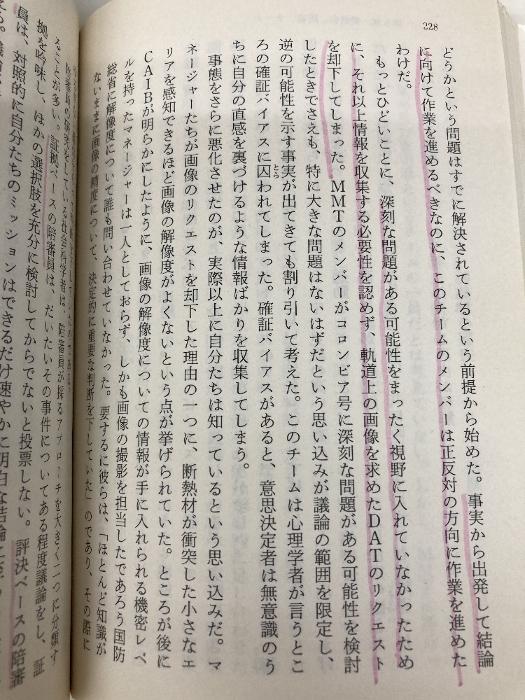 228
どうかという問題はすでに解決されているという前提から始めた。事実から出発して結論
に向けて作業を進めるべきなのに、このチームのメンバーは正反対の方向に作業を進めた
わけだ。
もっとひどいことに、深刻な問題がある可能性をまったく視野に入れていなかったため
に、それ以上情報を収集する必要性を認めず、軌道上の画像を求めたDATのリクエスト
を却下してしまった。MMTのメンバーがコロンビア号に深刻な問題がある可能性を検討
したときでさえも、特に大きな問題はないはずだという思い込みが議論の範囲を限定し、
逆の可能性を示す事実が出てきても割り引いて考えた。このチームは心理学者が言うとこ
ろの確証バイアスに囚われてしまった。確証バイアスがあると、意思決定者は無意識のう
ちに自分の直感を裏づけるような情報ばかりを収集してしまう。
事態をさらに悪化させたのが、実際以上に自分たちは知っているという思い込みだ。マ
ネージャーたちが画像のリクエストを却下した理由の一つに、断熱材が衝突した小さなエ
リアを感知できるほど画像の解像度がよくないという点が挙げられていた。ところが後に
CAIBが明らかにしたように、画像の解像度についての情報が手に入れられる機密レベ
ルを持ったマネージャーは一人としておらず、しかも画像の撮影を担当したであろう国防
総省に解像度について誰も問い合わせていなかった。要するに彼らは、「ほとんど知識が
ないままに画像の精度について、決定的に重要な判断を下していた」のであり、その際に
社会科学者は、陪審員が採るアプローチを大きく二つに分類す
ることが多い。証拠ベースの陪審員は、だいたいその事件についてある程度議論をし、証
拠を吟味し、ほかの選択肢を充分に検討してからでないと投票しない。評決ベースの陪審
員は、対照的に自分たちのミッションはできるだけ速やかに明白な結論に